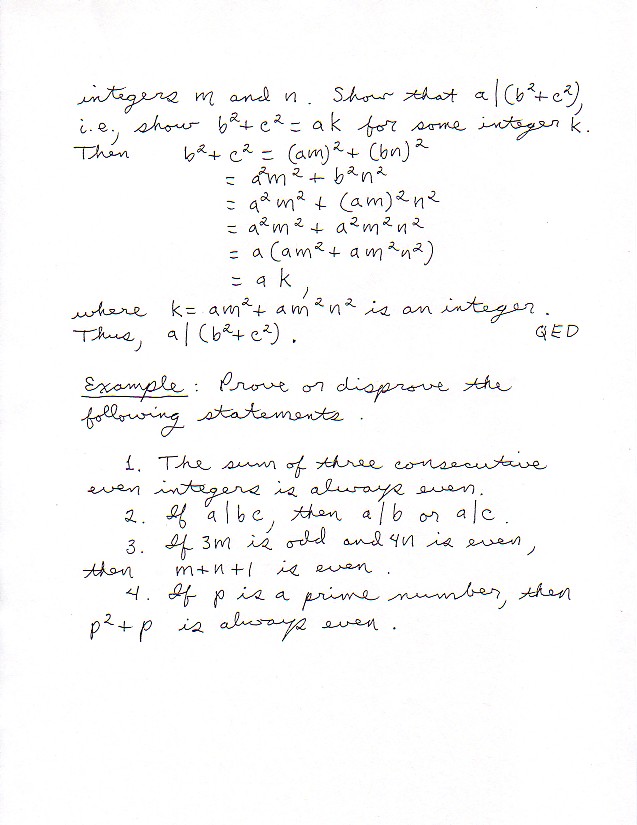 integers m and n. Show that a|(b²+c²),
i.e., show b²+c² = ak for some integer k.
Then b²+c² = (am)²+(bn)²
= a²m² + b²n²
= a²m² + (am)²n²
= a²m² + a²m²n²
= a(am²+am²n²)
= ak,
where k = am²+am²n² is an integer.
Thus, a|(b²+c²). QED
Example: Prove or disprove the
following statements.
1. The sum of three consecutive
even integers is always even.
2. If a|bc, then a|b or a|c.
3. If 3m is odd and 4n is even,
then m+n+1 is even.
4. If p is a prime number, then
p²+p is always even.